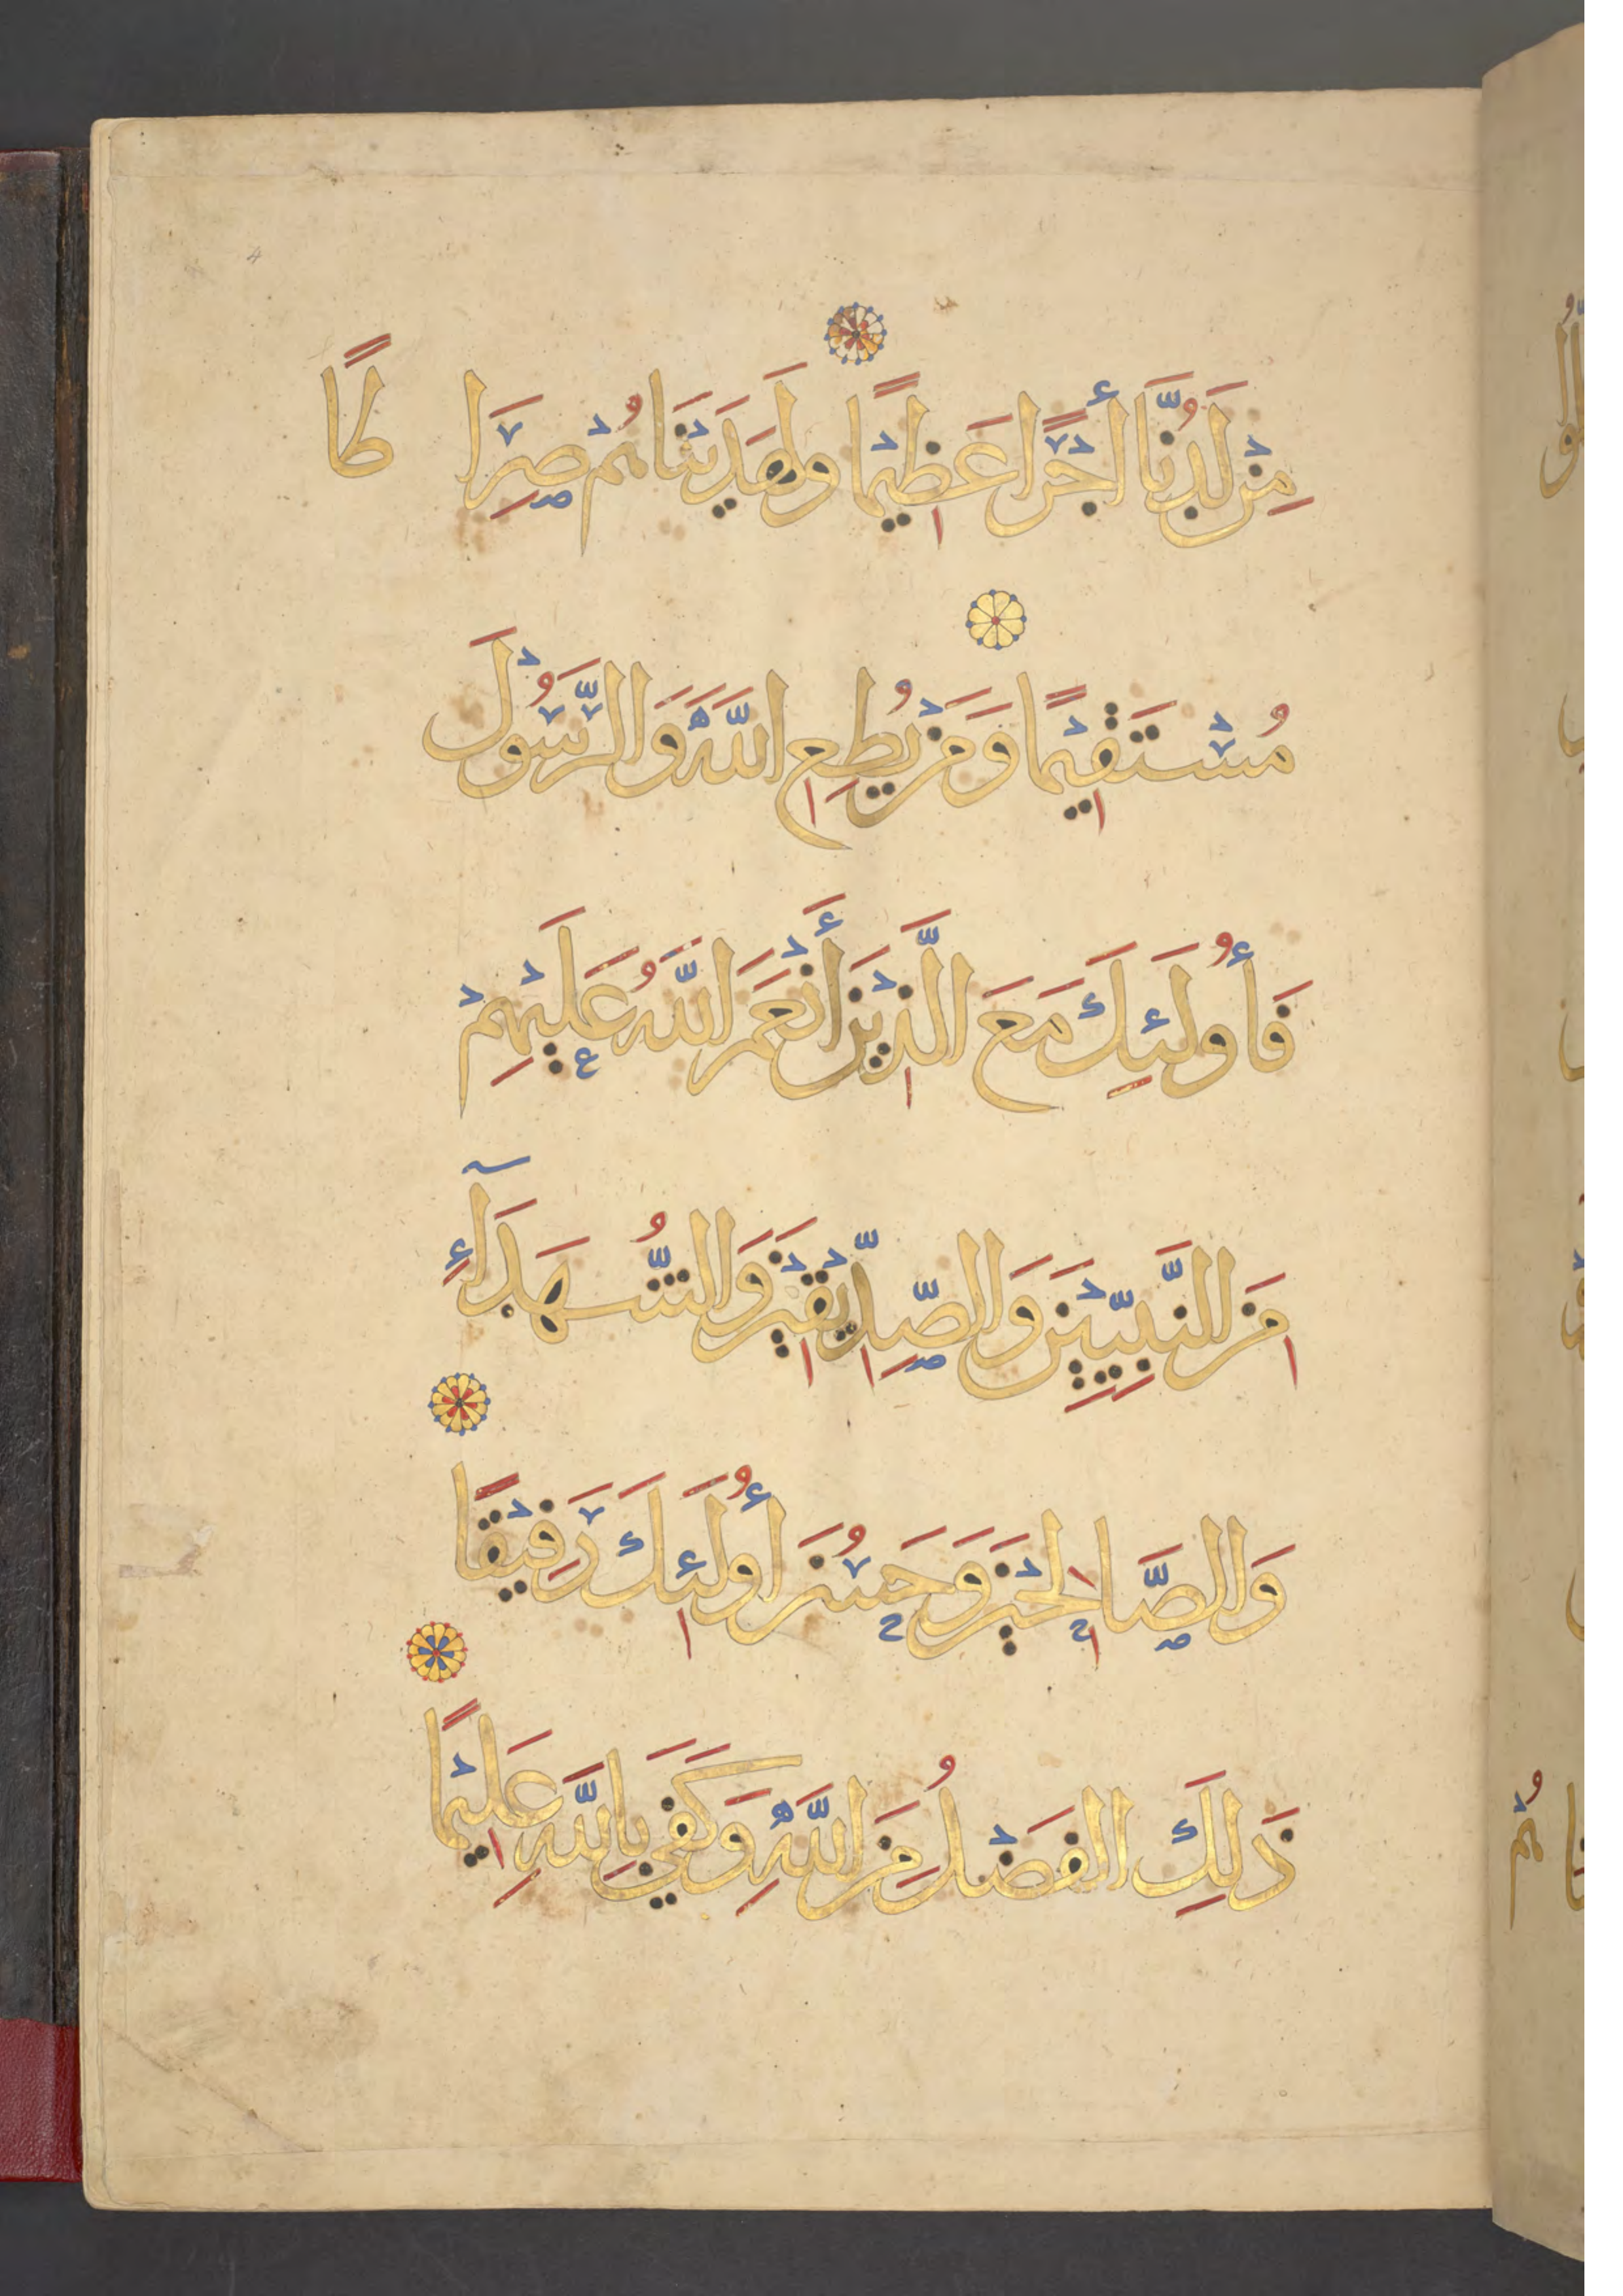 مِن لَدُنَّا أَجْرًا عَظِيمًا وَلَهَدَيْنَاهُمْ صِرَاطًا
مُسْتَقِيمًا وَمَن يُطِعِ اللَّهَ وَالرَّسُولَ
فَأُولَئِكَ مَعَ الَّذِينَ أَنْعَمَ اللَّهُ عَلَيْهِمْ
مِنَ النَّبِيِّينَ وَالصِّدِّيقِينَ وَالشُّهَدَآءِ
وَالصَّالِحِينَ وَحَسُنَ أُولَئِكَ رَفِيقًا
ذَلِكَ الْفَضْلُ مِنَ اللَّهِ وَكَفَى بِاللَّهِ عَلِيمًا